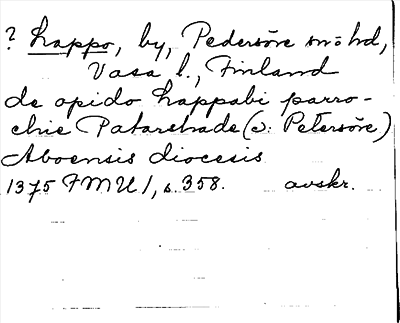 ? Lappo, by, Pedersöre sn o hd,
Vasa l., Finland
de opido Lappabi parro-
chie Patarshade (ɔ: Petersöre)
Aboensis diocesis
1375 FMU I, s. 358. avskr.